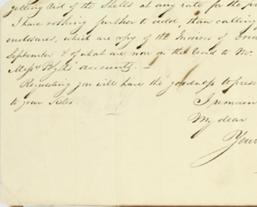 getting rid of the Shells at any rate for the
I have nothing further to add, than calling
enclosures, which are copy of the Invoice of
September & of what are now on the to Mr.
Messrs accounts. —
Requesting you will have the goodness to
to your
I remain
My dear
Your